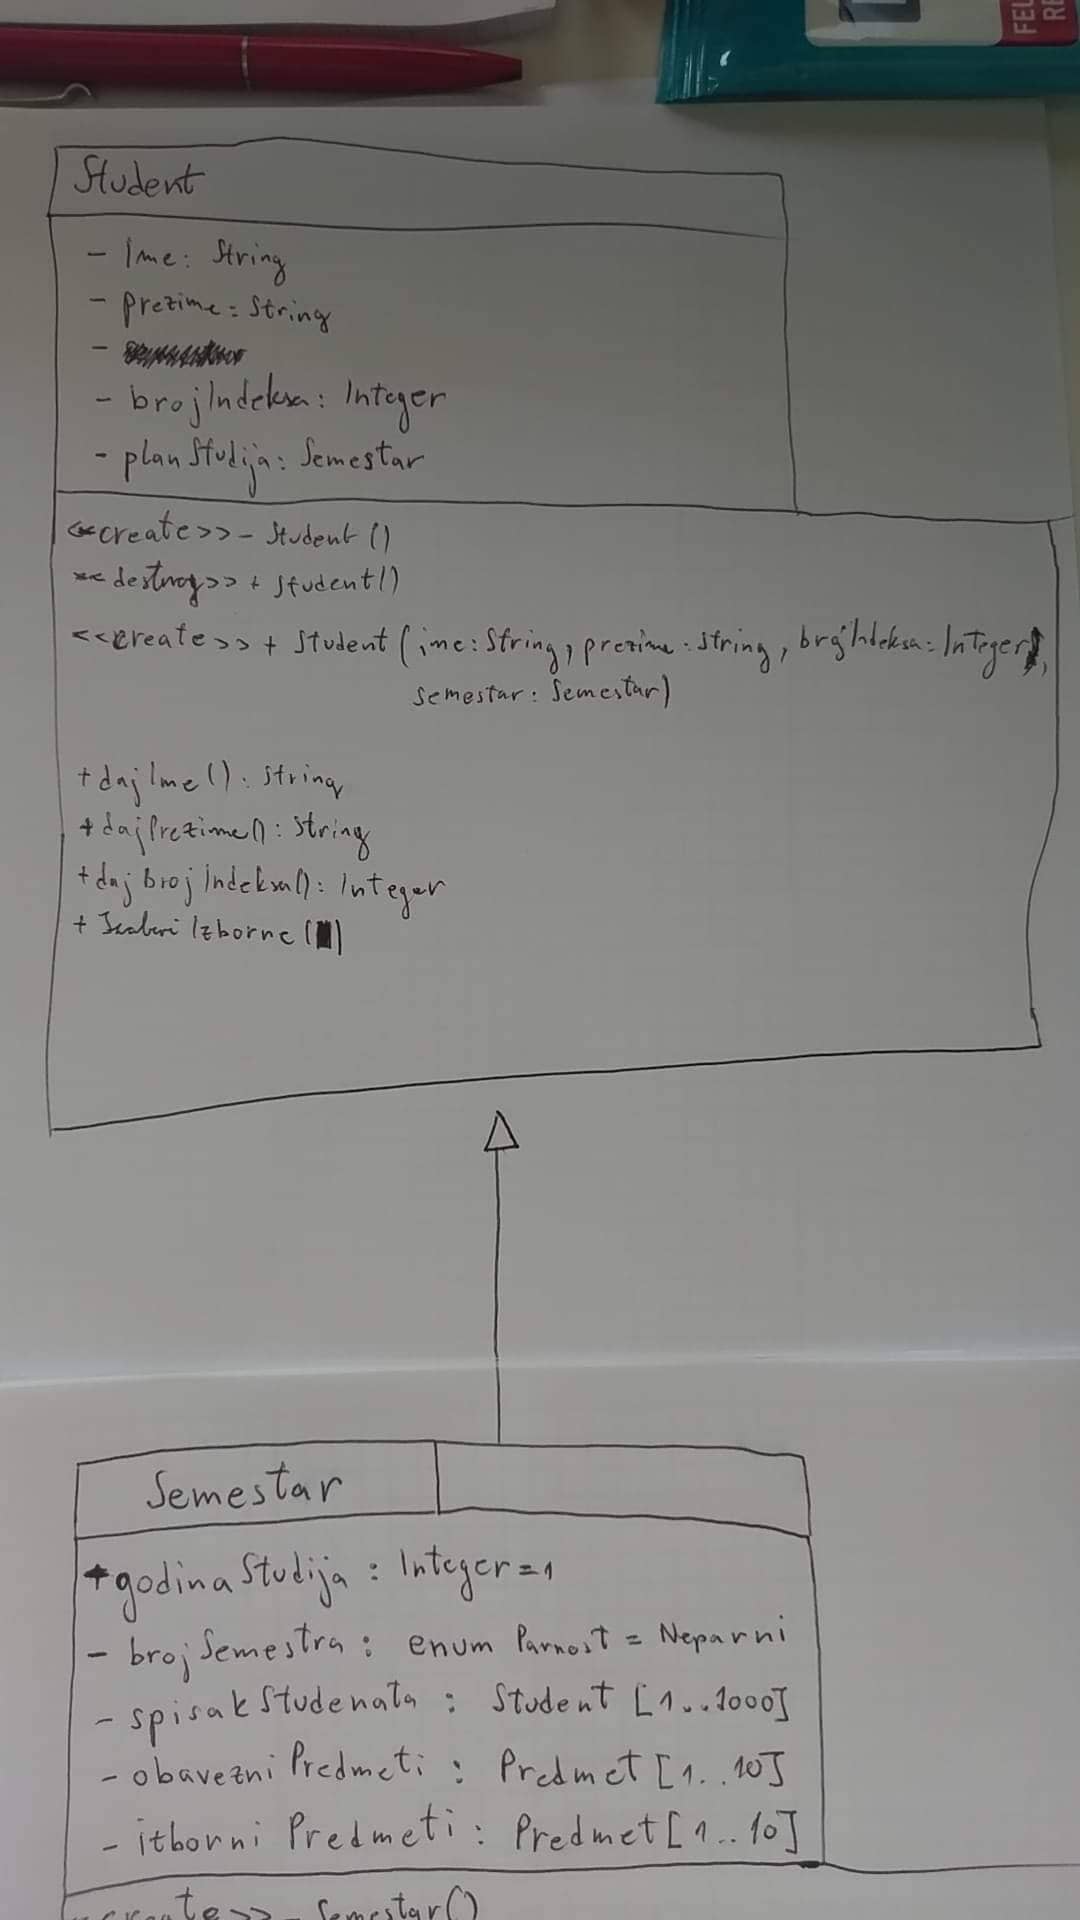 FEL
RE
Student
- Ime: String
- prezime: String
-
- brojIndeksa: Integer
- planStudija: Semestar
<<create>> - Student()
<<destroy>> + Student()
<<create>> + Student (ime: String, prezime: String, brojIndeksa: Integer,
semestar: Semestar)
+ dajIme(): String
+ dajPrezime(): String
+ dajbrojIndeksa(): Integer
+ Izaberi Izborne ()
Semestar
+ godinaStudija: Integer = 1
- brojSemestra: enum Parnost = Neparni
- spisakStudenata: Student [1..1000]
- obavezniPredmeti: Predmet [1..10]
- izborniPredmeti: Predmet [1..10]
<<create>> - Semestar()